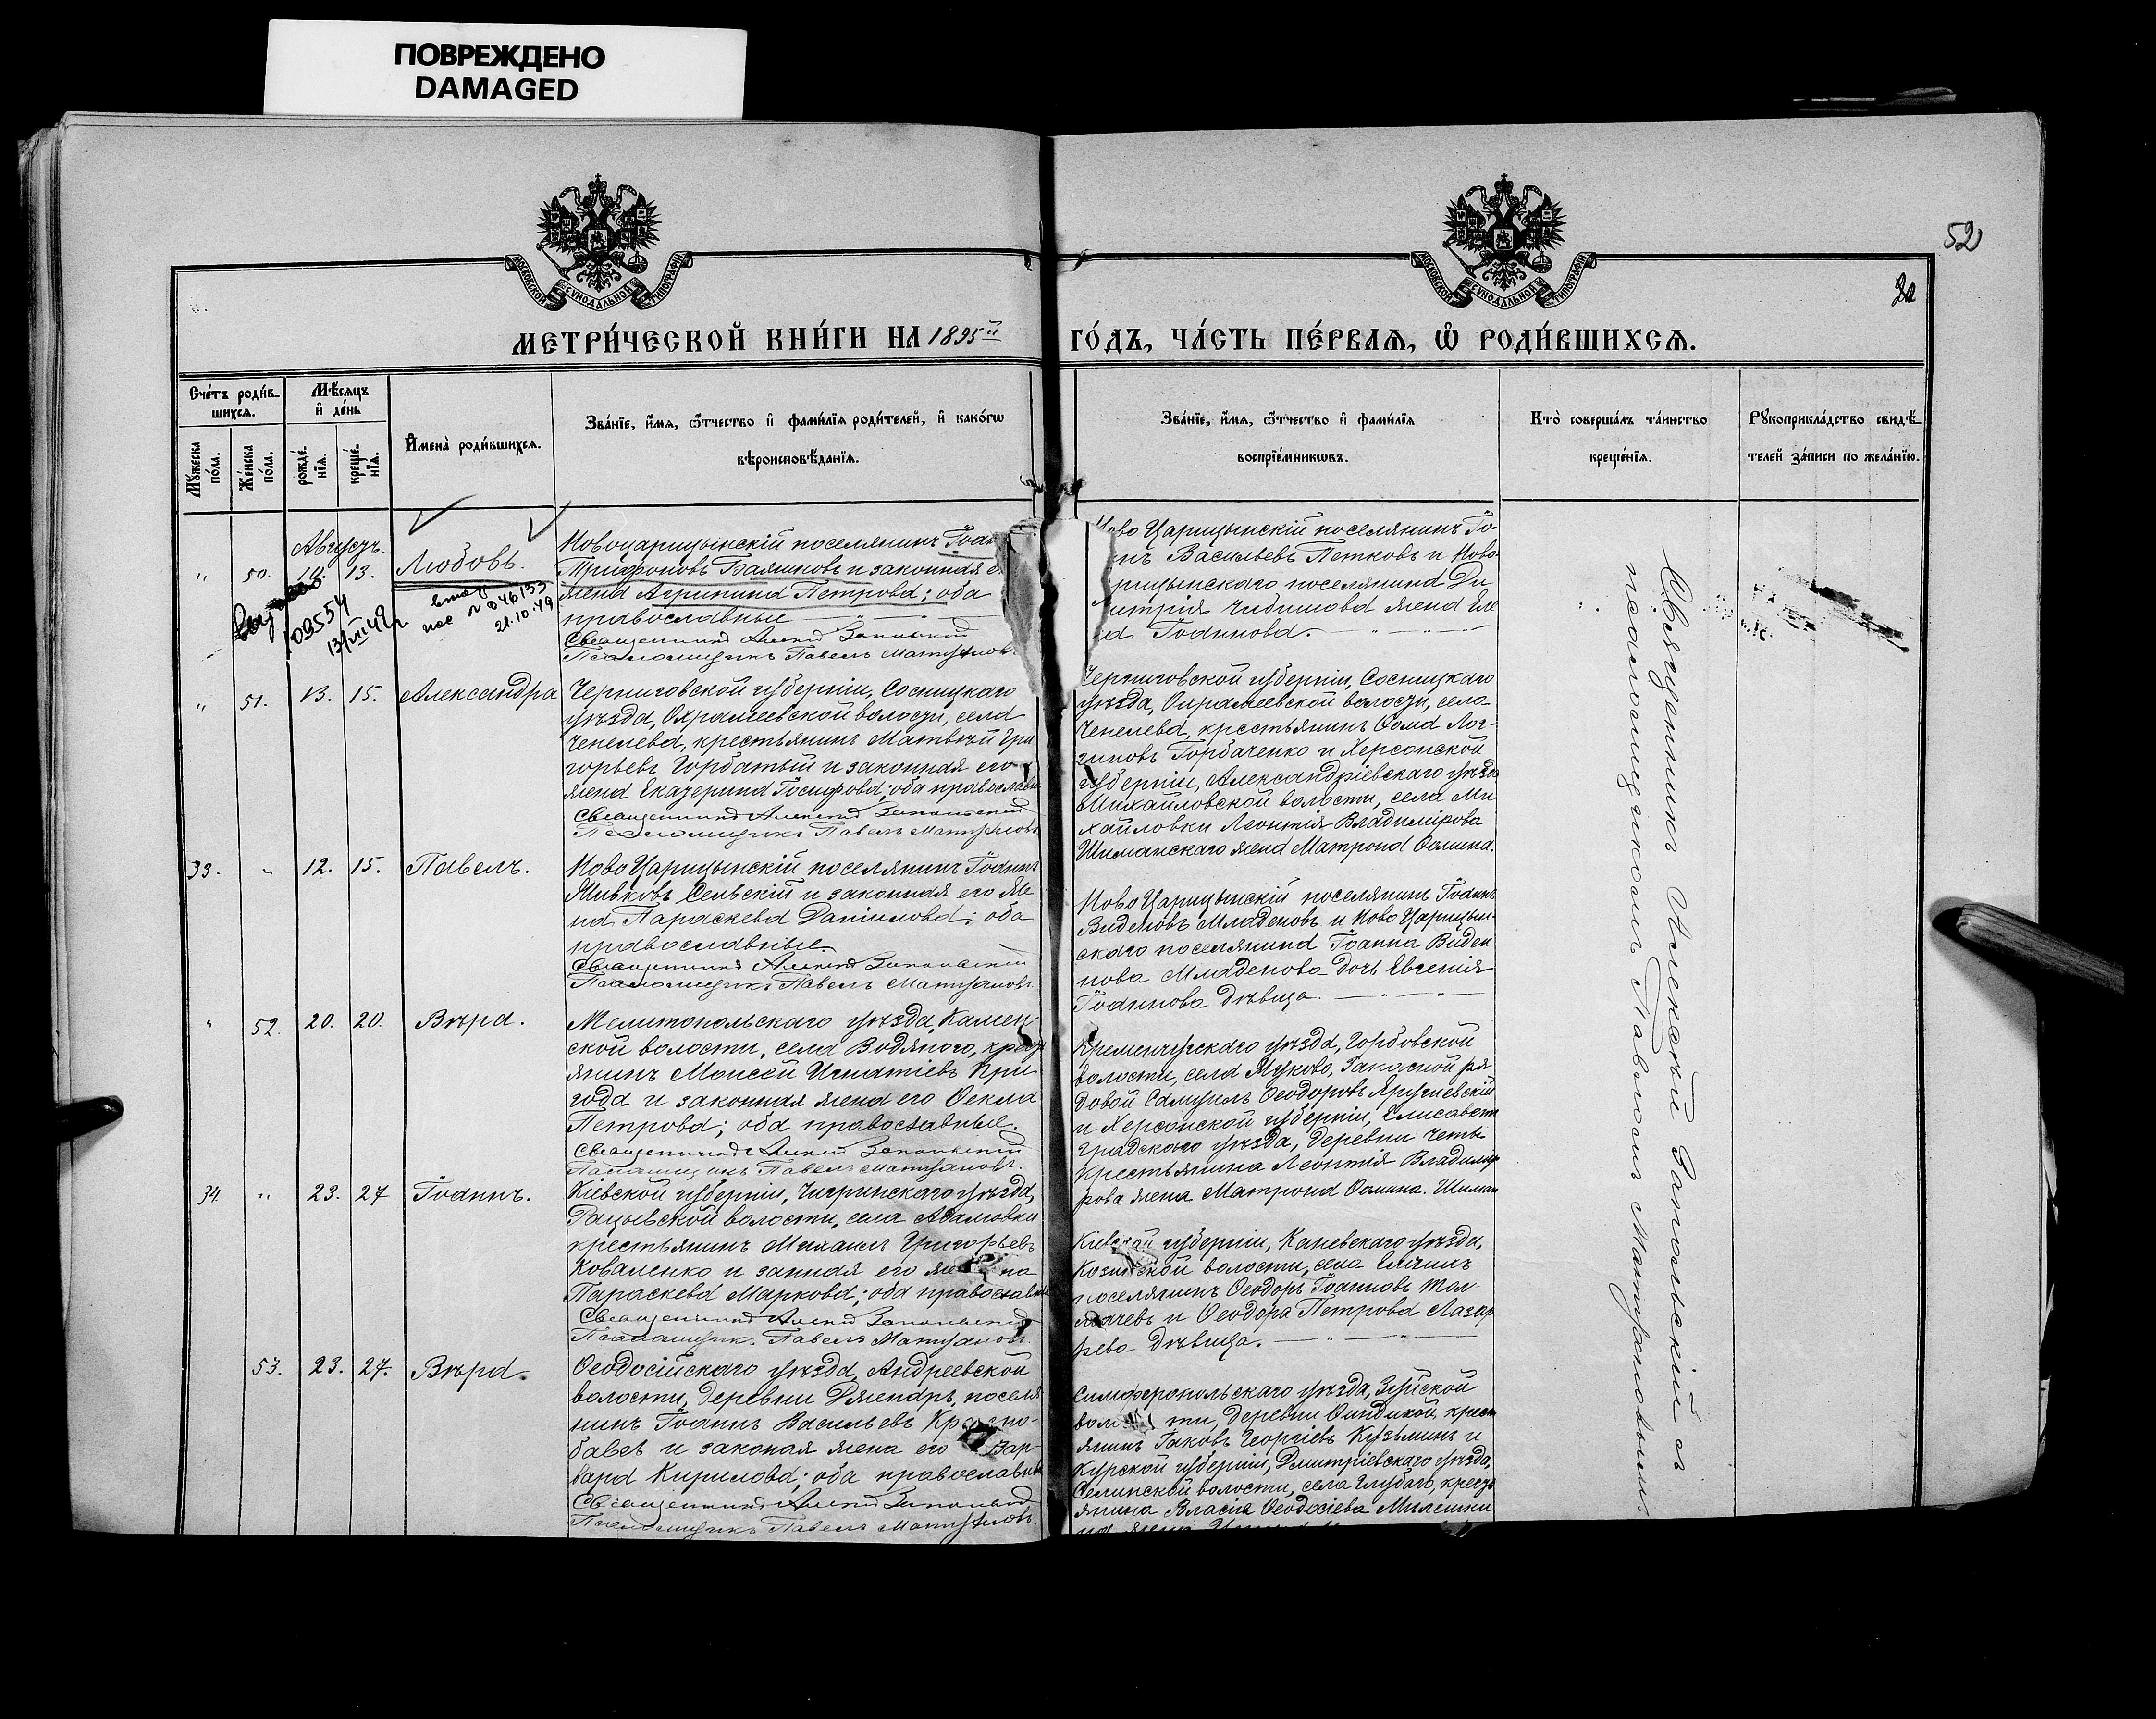 ПОВРЕЖДЕНО
DAMAGED
МОСКОВСКОЙ СѴНОДАЛЬНОЙ ТИПОГРАФІИ
МОСКОВСКОЙ СѴНОДАЛЬНОЙ ТИПОГРАФІИ
52
МЕТРИ́ЧЕСКОЙ КНИ́ГИ НА 1895й ГО́ДЪ, ЧА́СТЬ ПЕ́РВАѦ, Ѡ҆ РОДИ́ВШИХСѦ.
Сче́тъ роди́в-
шихсѧ.
Мꙋжеска по́ла.
Же́нска по́ла.
Мѣ́сѧцъ
и҆ де́нь
рожде́-
нїѧ.
креще́-
нїѧ.
И҆мена̀ роди́вшихсѧ.
Зва́нїе, и҆́мѧ, ѻ҆́тчество и҆ фами́лїѧ роди́телей, и҆ како́гѡ
вѣроисповѣ́данїѧ.
Зва́нїе, и҆́мѧ, ѻ҆́тчество и҆ фами́лїѧ
воспрїе́мникѡвъ.
Кто̀ соверша́лъ та́инство
креще́нїѧ.
Рꙋкоприкла́дство свидѣ́-
телей за́писи по жела́нїю.
Августъ.
" 50. 13. Любовь.
109554
21.10.49
Новоцарицынскій поселянинъ
Трифоновъ Баликовъ и законная
жена Агрипина Петрова; оба
православные
Священникъ Алексій Запольскій
Псаломщикъ Павелъ Матузановъ
Ново Царицынскій поселянинъ Іо-
Васильевъ Петковъ и Ново
поселянина Ди
Чибишова жена Еле
Іоаннова.
" 51. 13. 15. Александра
Черниговской губерніи, Сосницкаго
уѣзда, Охрамеевской волости, села
Чепелева, крестьянинъ Матвѣй Гри
горьевъ Горбатый и законная его
жена Екатерина Іосифова; оба православн
Священникъ Алексій Запольскій
Псаломщикъ Павелъ Матузановъ
Черниговской губерніи, Сосницкаго
уѣзда, Охрамеевской волости, села
Чепелева, крестьянинъ Ѳома Лог-
гиновъ Горбаченко и Херсонской
губерніи, Александріевскаго уѣзда
Михайловской волости, села Ми
хайловки Леонтія Владимірова
Шиманскаго жена Матрона Ѳомина.
33. " 12. 15. Павелъ.
Ново Царицынскій поселянинъ Іоаннъ
Живковъ Сельскій и законная его же
на Параскева Даніилова; оба
православные.
Священникъ Алексій Запольскій
Псаломщикъ Павелъ Матузановъ.
Ново Царицынскій поселянинъ Іоаннъ
Виденовъ Младеновъ и Ново Царицын-
скаго поселянина Іоанна Виден
нова Младенова дочь Евгенія
Іоаннова дѣвица.
" 52. 20. 20. Вѣра.
Мелитопольскаго уѣзда, Камен-
ской волости, села Водяного, крест
янинъ Моисей Игнатіевъ При
года и законная жена его Ѳекла
Петрова; оба православные.
Священникъ Алексій Запольскій
Псаломщикъ Павелъ Матузановъ.
Кременчугскаго уѣзда, Горбовской
волости, села Жуково, Запасной ря
довой Самуилъ Ѳеодоровъ
и Херсонской губерніи, Елисавет
градскаго уѣзда, деревни
Крестьянина Леонтія Владими
рова жена Матрона Ѳомина. Шиман
34. " 23. 27 Іоаннъ.
Кіевской губерніи, Чигринскаго уѣзда,
Рацьевской волости, села Адамовки
крестьянинъ Михаилъ Григорьевъ
Коваленко и занная его же на
Параскева Маркова; оба православн
Священникъ Алексій Запольскій
Псаломщикъ Павелъ Матузановъ.
Кіевской губерніи, Каневскаго уѣзда,
Козинской волости, села
поселянинъ Ѳеодоръ Іоанновъ Тол
мачевъ и Ѳеодора Петрова Лазар
рева дѣвица.
53. 23. 27. Вѣра.
Ѳеодосійскаго уѣзда, Андреевской
волости, деревни поселя
нинъ Іоаннъ Васильевъ
баевъ и законая жена его Вар-
вара Кирилова; оба православны
Священникъ Алексій Запольскій
Псаломщикъ Павелъ Матузановъ.
Симферопольскаго уѣзда, Зуйской
деревни крест
янинъ Іаковъ Георгіевъ Кузьминъ и
Курской губерніи, Дмитріевскаго уѣзда,
Селинской волости, села Глубаго, крест
янина Власія Ѳеодосіева Милешки
Священникъ Алексій Запольскій съ
псаломщикомъ Павломъ Матузановымъ.